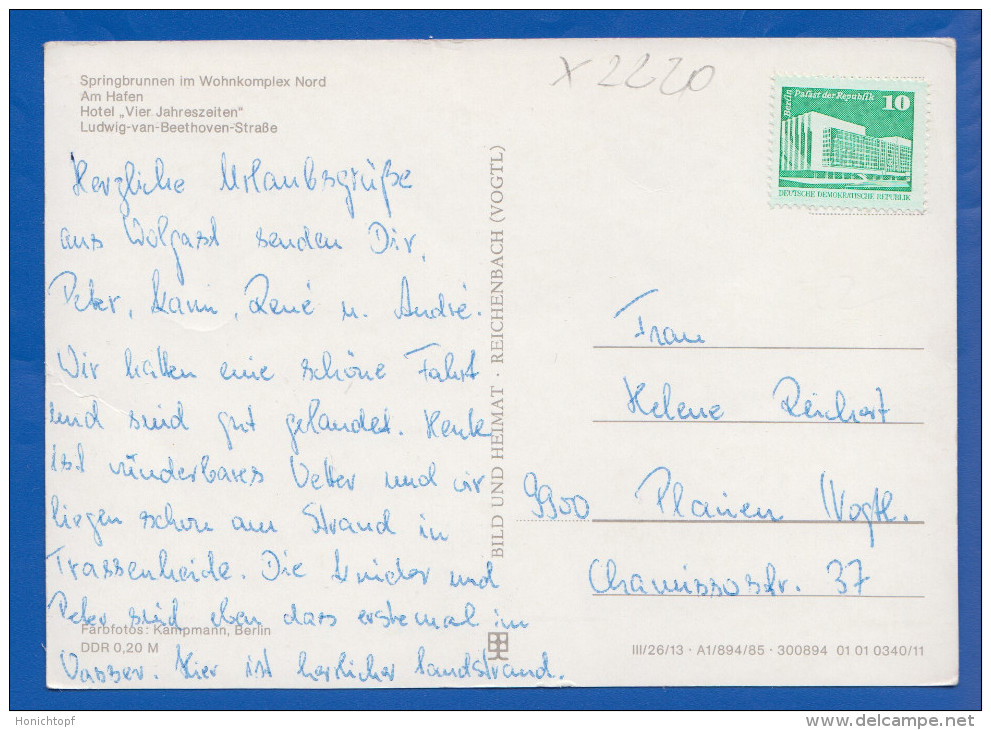 Springbrunnen im Wohnkomplex Nord
Am Hafen
Hotel „Vier Jahreszeiten"
Ludwig-van-Beethoven-Straße
x 2220
Berlin Palast der Republik 10
DEUTSCHE DEMOKRATISCHE REPUBLIK
Herzliche Urlaubsgrüße
aus Wolgast senden Dir,
Peter, Karin, René u. André.
Wir hatten eine schöne Fahrt
und sind gut gelandet. Heute
ist wunderbares Wetter und wir
liegen schon am Strand in
Trassenheide. Die Kinder und
Peter sind eben das erstemal im
Wasser. Hier ist herrlicher Sandstrand.
Farbfotos: Kampmann, Berlin
DDR 0,20 M
BILD UND HEIMAT · REICHENBACH (VOGTL)
Frau
Helene Reichert
9900 Plauen / Vogtl.
Chamissostr. 37
III/26/13 · A1/894/85 · 300894 01 01 0340/11
Honichtopf
www.delcampe.net